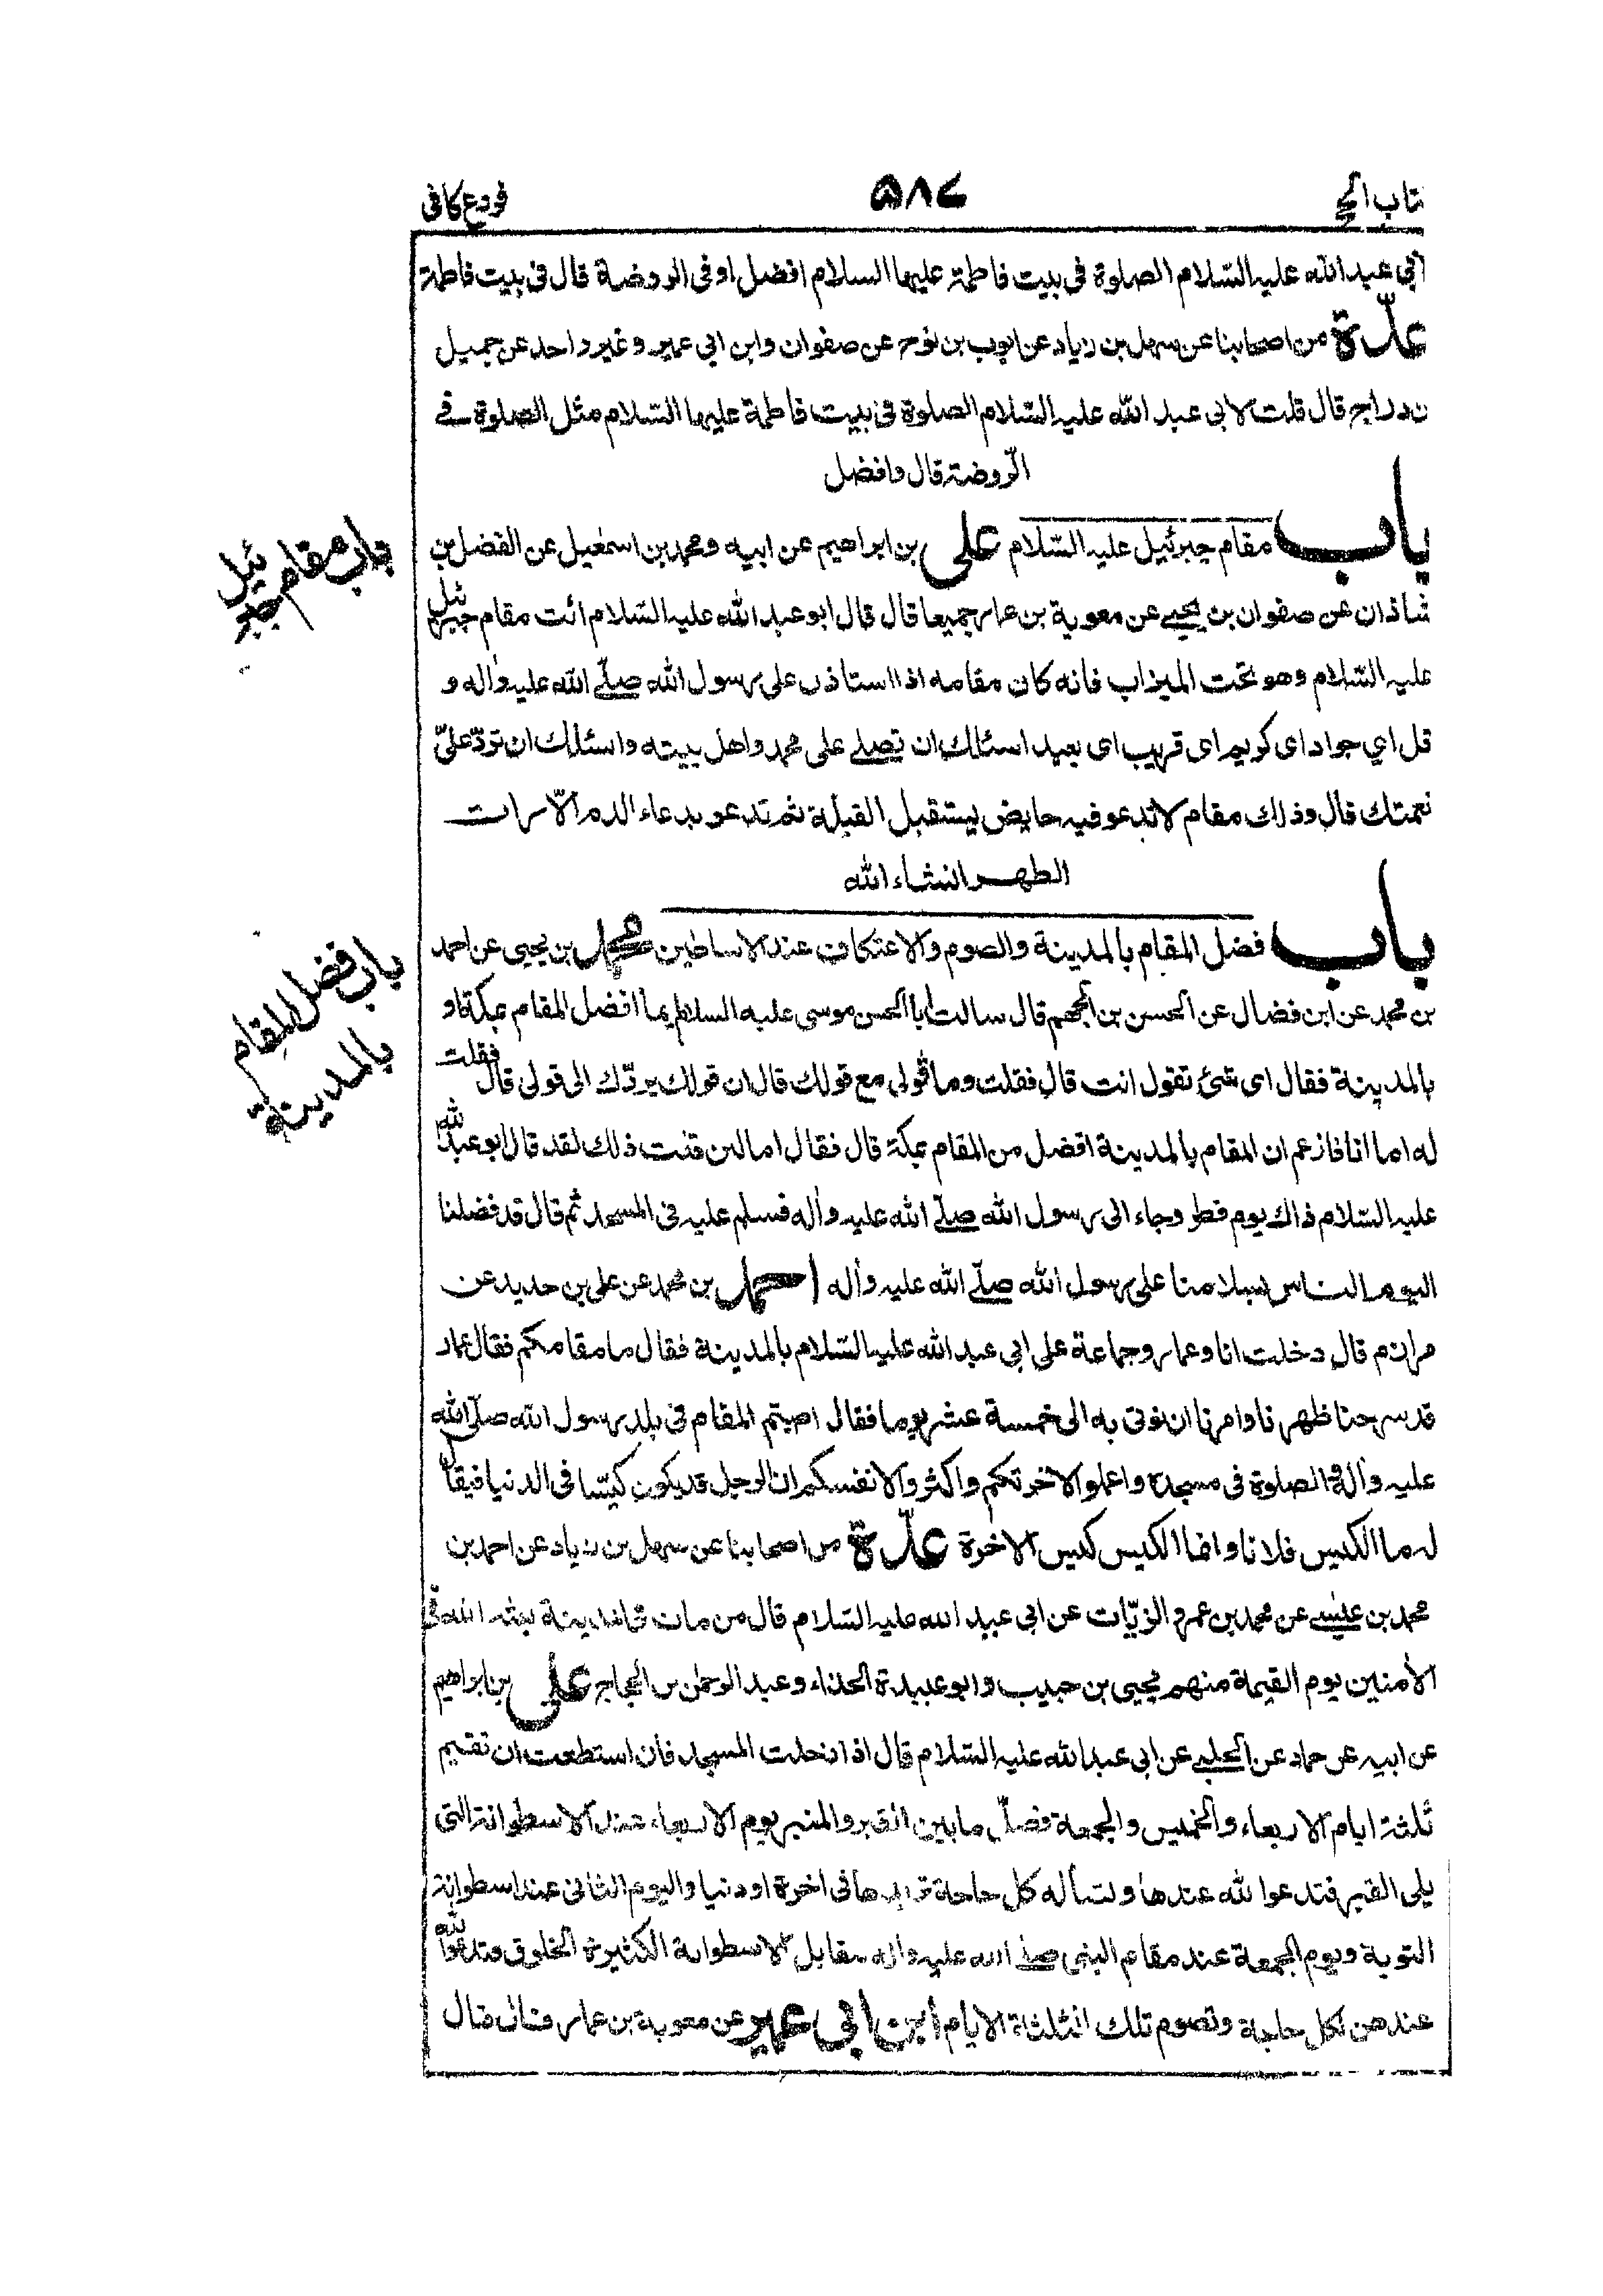 كتاب الحج ٥٨٤ فروع كافى
ابي عبد الله عليه السّلام الصلوة فى بيت فاطمة عليها السلام افضل او فى الروضة قال فى بيت فاطمة
علّة من اصحابنا عن سهل بن زياد عن ايوب بن نوح عن صفوان وابن ابي عمير وغير واحد عن جميل
بن دراج قال قلت لابي عبد الله عليه السّلام الصلوة فى بيت فاطمة عليها السّلام مثل الصلوة فے
الرّوضة قال وافضل
باب مقام جبرئيل عليه السّلام على بن ابراهيم عن ابيه ومحمد بن اسمعيل عن الفضل بن
شاذان عن صفوان بن يحيے عن معوية بن عمار جميعا قال قال ابو عبد الله عليه السّلام ائت مقام جبرئيل
عليه السّلام وهو تحت الميزاب فانه كان مقامه اذا استاذن على رسول الله صلّے الله عليه واٰله و
قل اي جواد اى كريم اى قريب اى بعيد اسئلك ان تصلے على محمد واهل بيته واسئلك ان تردّ علىّ
نعمتك قال وذلك مقام لا تدعو فيه حايض يستقبل القبلة ثم تدعو بدعاء الدم الّا رات
الطهر انشاء الله
باب فضل المقام بالمدينة والصوم والاعتكاف عند الاساطين محمد بن يحيى عن احمد
بن محمد عن ابن فضال عن الحسن بن الجهم قال سالت ابا الحسن موسى عليه السلام ايما افضل المقام بمكة او
بالمدينة فقال اى شئ تقول انت قال فقلت وما قولى مع قولك قال ان قولك يردّك الى قولى قال فقلت
له اما انا فازعم ان المقام بالمدينة افضل من المقام بمكة قال فقال اما لئن قلت ذلك لقد قال ابو عبد الله
عليه السّلام ذاك يوم فطر وجاء الى رسول الله صلّے الله عليه واٰله فسلم عليه فى المسجد ثم قال قد فضلنا
اليوم الناس بسلامنا على رسول الله صلّے الله عليه واٰله احمد بن محمد عن على بن حديد عن
مرازم قال دخلت انا وعمار وجماعة على ابي عبد الله عليه السّلام بالمدينة فقال ما مقامكم فقال عمار
قد سرحنا ظهرنا وامرنا ان نوتى به الى خمسة عشر يوما فقال اصبتم المقام فى بلد رسول الله صلّے الله
عليه واٰله والصلوة فى مسجده واعملوا لاخرتكم واكثروا لانفسكم ان الرجل قد يكون كيّسا فى الدنيا فيقال
له ما اكيس فلانا وانما الكيس كيس الاخرة علّة من اصحابنا عن سهل بن زياد عن احمد بن
محمد بن عيسے عن محمد بن عمرو الزيّات عن ابي عبد الله عليه السّلام قال من مات فى المدينة بعثه الله فى
الاٰمنين يوم القيمة منهم يحيى بن حبيب وابو عبيدة الحذاء وعبد الرحمٰن بن الحجاج على بن ابراهيم
عن ابيه عن حماد عن الحلبے عن ابي عبد الله عليه السّلام قال اذا دخلت المسجد فان استطعت ان تقيم
ثلثة ايام الاربعاء والخميس والجمعة فصلّ ما بين القبر والمنبر يوم الاربعاء عند الاسطوانة التى
يلى القبر فتدعوا لله عندها وتسأله كل حاجة تريدها فى اخرة او دنيا واليوم الثانى عند اسطوانة
التوبة ويوم الجمعة عند مقام النبى صلے الله عليه واٰله مقابل الاسطوانة الكثيرة الخلوق فتدعوا لله
عندهن لكل حاجة وتصوم تلك الثلثة الايام ابن ابي عمير عن معوية بن عمار قال قال
باب مقام جبرئيل
باب فضل المقام
بالمدينة